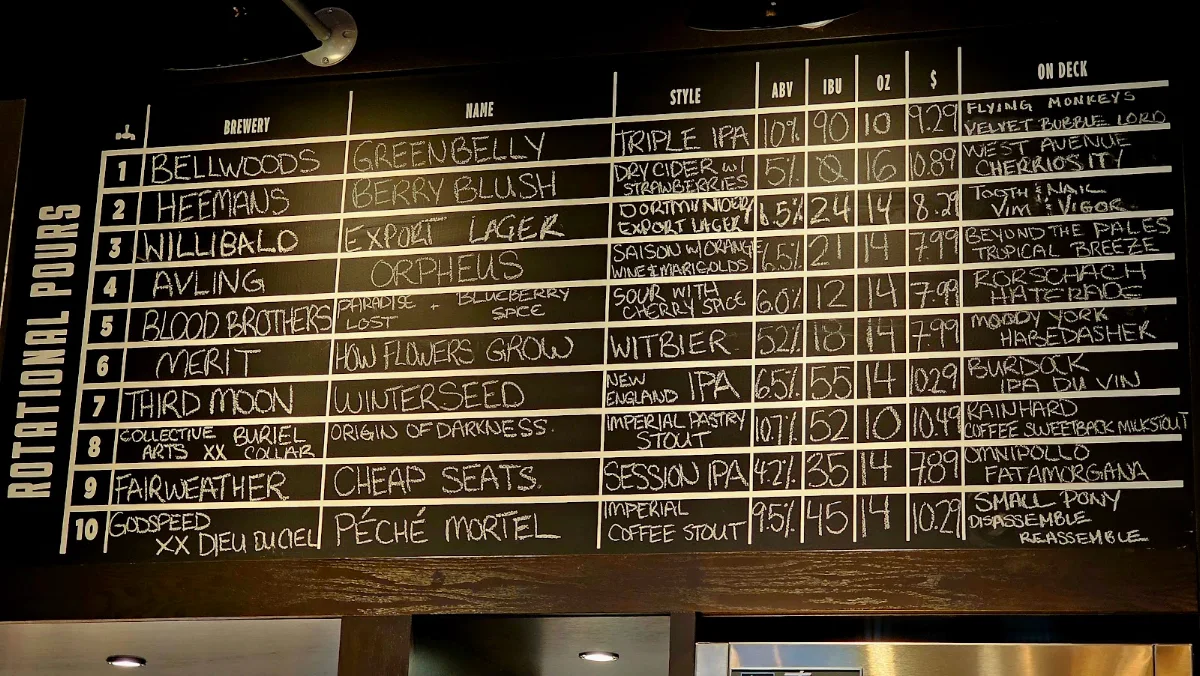 ROTATIONAL POURS
BREWERY NAME STYLE ABV IBU OZ $ ON DECK
1 BELLWOODS GREENBELLY TRIPLE IPA 10% 90 10 9.29 FLYING MONKEYS
VELVET BUBBLE LORD
2 HEEMANS BERRY BLUSH DRY CIDER W/ 5% 0 16 10.89 WEST AVENUE
STRAWBERRIES CHERRIOSITY
3 WILLIBALD EXPORT LAGER DORTMUNDER 24 14 8.29 TOOTH & NAIL
EXPORT LAGER VIM & VIGOR
4 AVLING ORPHEUS SAISON W/ ORANGE 21 14 7.99 BEYOND THE PALES
WINE & MARIGOLDS TROPICAL BREEZE
5 BLOOD BROTHERS PARADISE + BLUEBERRY SOUR WITH 6.0% 12 14 7.99 RORSCHACH
LOST SPICE CHERRY SPICE HATERADE
6 MERIT HOW FLOWERS GROW WITBIER 52% 18 14 7.99 MOODY YORK
HABEDASHER
7 THIRD MOON WINTERSEED NEW ENGLAND IPA 6.5% 55 14 10.29 BURDOCK
IPA DU VIN
8 COLLECTIVE BURIEL ORIGIN OF DARKNESS. IMPERIAL PASTRY 10.7% 52 10 10.49 RAINHARD
ARTS XX COLLAR STOUT COFFEE SWEETBACK MILKSTOUT
9 FAIRWEATHER CHEAP SEATS. SESSION IPA 4.2% 35 14 7.89 OMNIPOLLO
FATAMORGANA
10 GODSPEED PÉCHÉ MORTEL IMPERIAL 9.5% 45 14 10.29 SMALL PONY
XX DIEU DU CIEL COFFEE STOUT DISASSEMBLE
REASSEMBLE